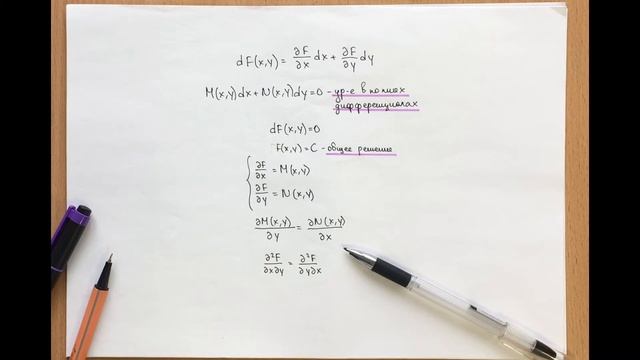 dF(x,y) = ∂F/∂x dx + ∂F/∂y dy
M(x,y)dx + N(x,y)dy = 0 - ур-е в полных
дифференциалах
dF(x,y) = 0
F(x,y) = C - общее решение
∂F/∂x = M(x,y)
∂F/∂y = N(x,y)
∂M(x,y)/∂y = ∂N(x,y)/∂x
∂²F/∂x∂y = ∂²F/∂y∂x